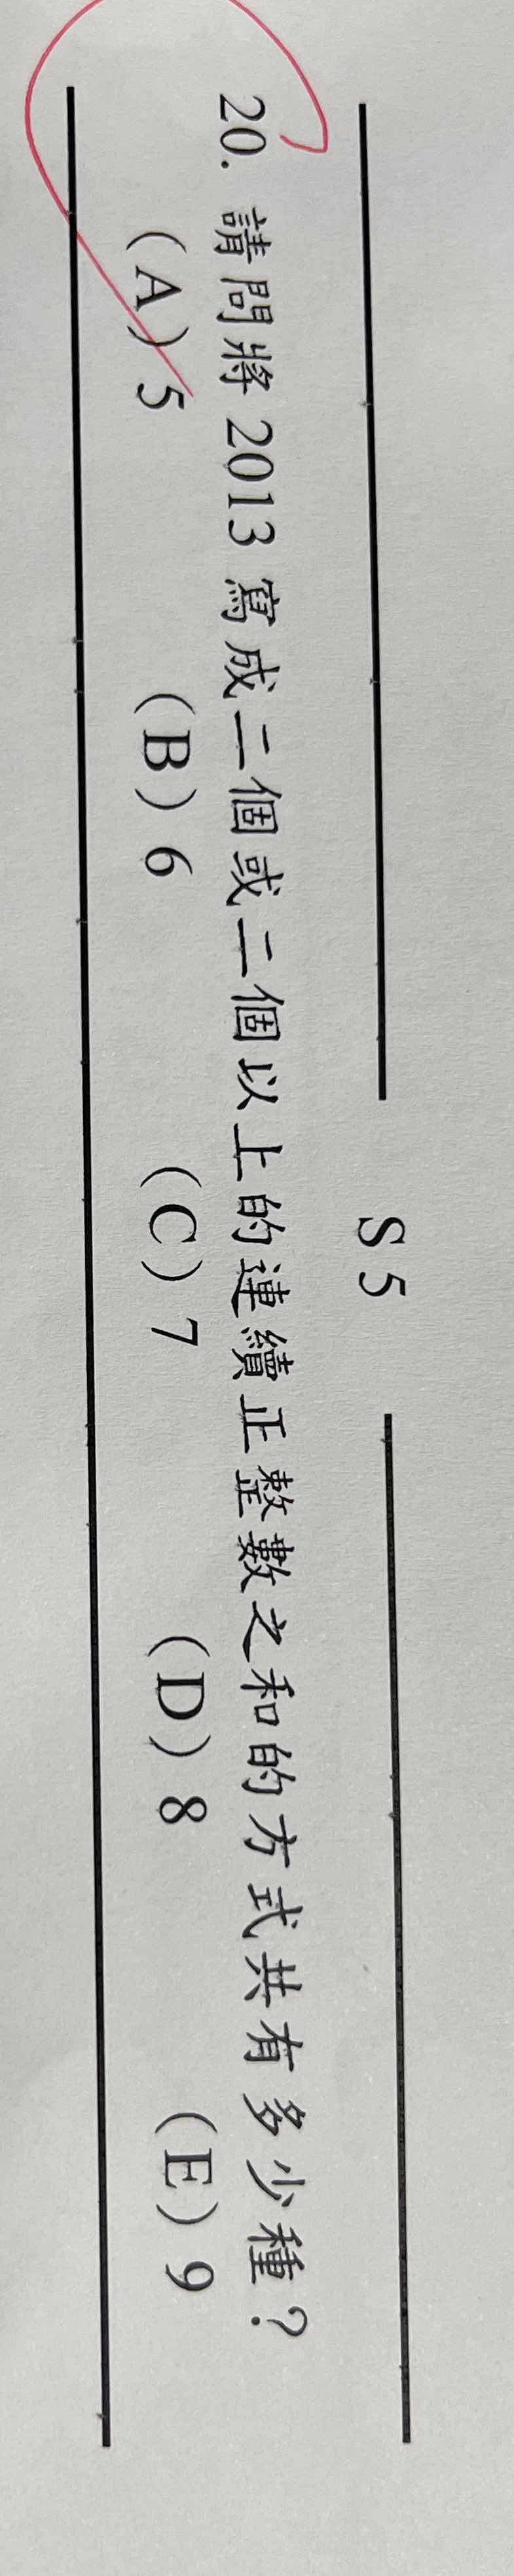 S 5
20. 請問將 2013 寫成二個或二個以上的連續正整數之和的方式共有多少種？
(A) 5 (B) 6 (C) 7 (D) 8 (E) 9